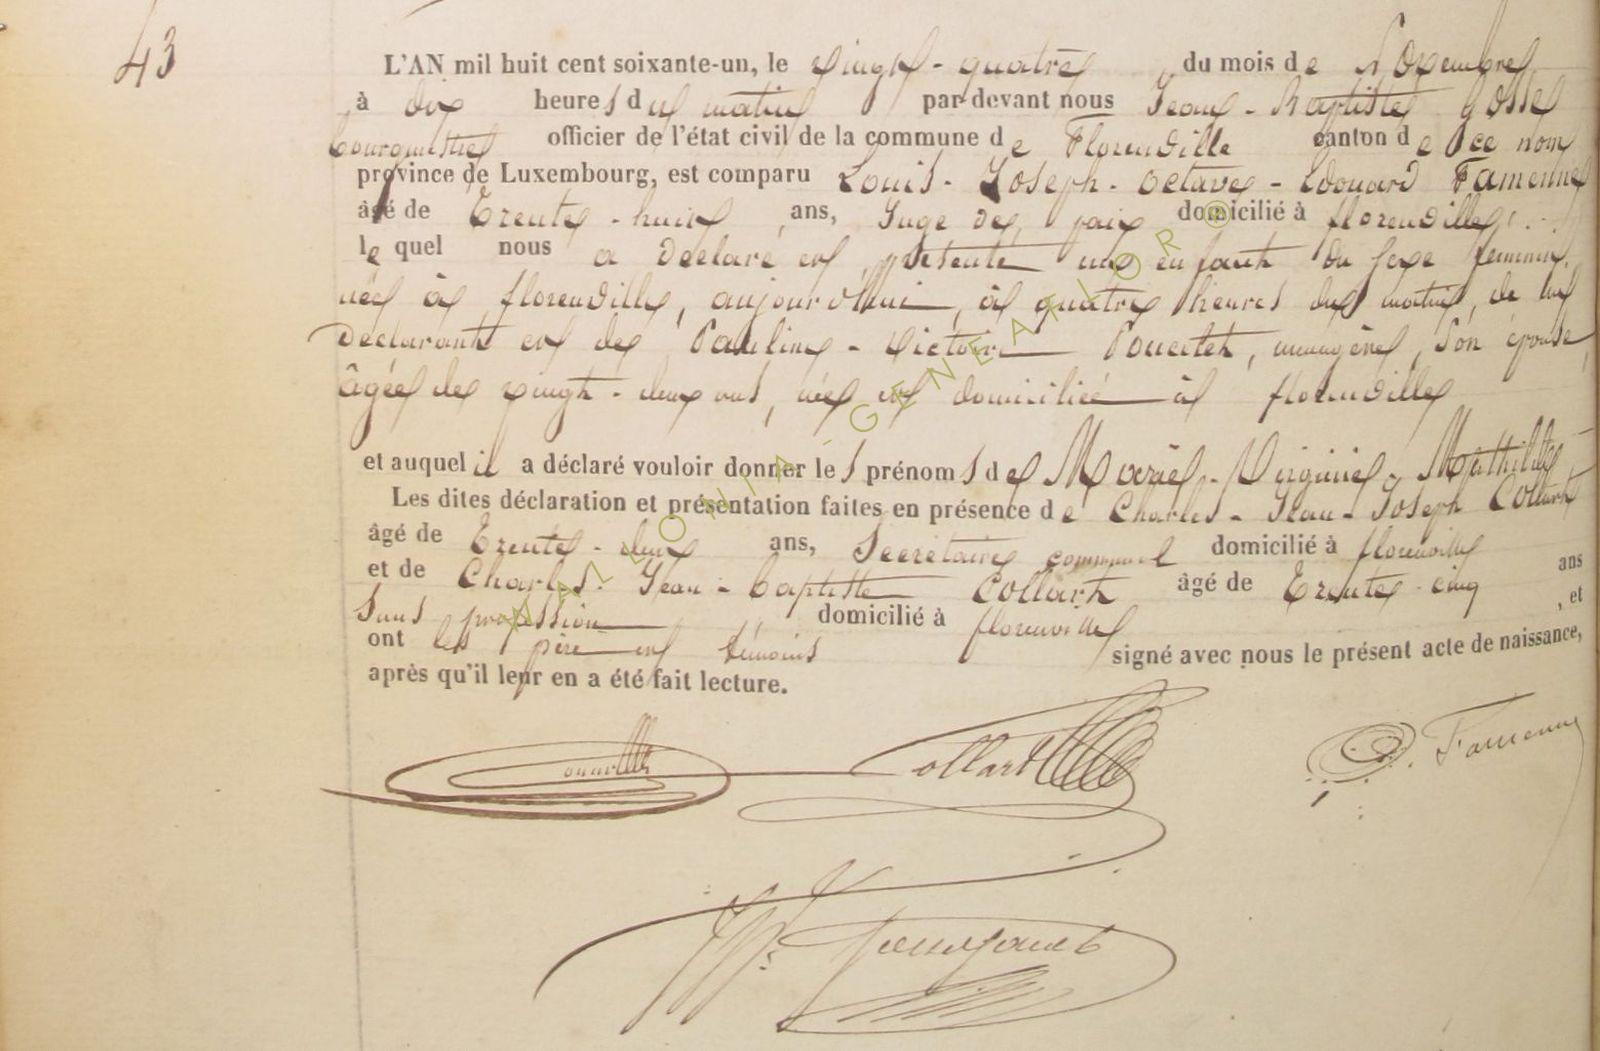 43
L'AN mil huit cent soixante-un, le vingt-quatre du mois de Novembre
à dix heures du matin par-devant nous Jean-Baptiste Gosse
bourgmestre officier de l'état civil de la commune de Florenville canton de ce nom
province de Luxembourg, est comparu Louis-Joseph-Octave-Edouard Famenne
âgé de Trente-huit ans, Juge de paix domicilié à florenville
lequel nous a déclaré et présenté un enfant du sexe féminin,
née à florenville, aujourd'hui, à quatre heures du matin, de lui
déclarant et de Pauline-Victoire ménagère, son épouse,
âgée de vingt-deux ans, née et domiciliée à florenville
et auquel il a déclaré vouloir donner les prénoms de Marie-Virginie-Mathilde
Les dites déclaration et présentation faites en présence de Charles-Jean-Joseph Collart
âgé de Trente-deux ans, Secrétaire communal domicilié à florenville
et de Charles-Jean-baptiste Collart âgé de Trente-cinq ans
Sans profession domicilié à florenville, et
ont les père et témoins signé avec nous le présent acte de naissance,
après qu'il leur en a été fait lecture.
Collart
Famenne
WALLONIA-GENEATIOR®